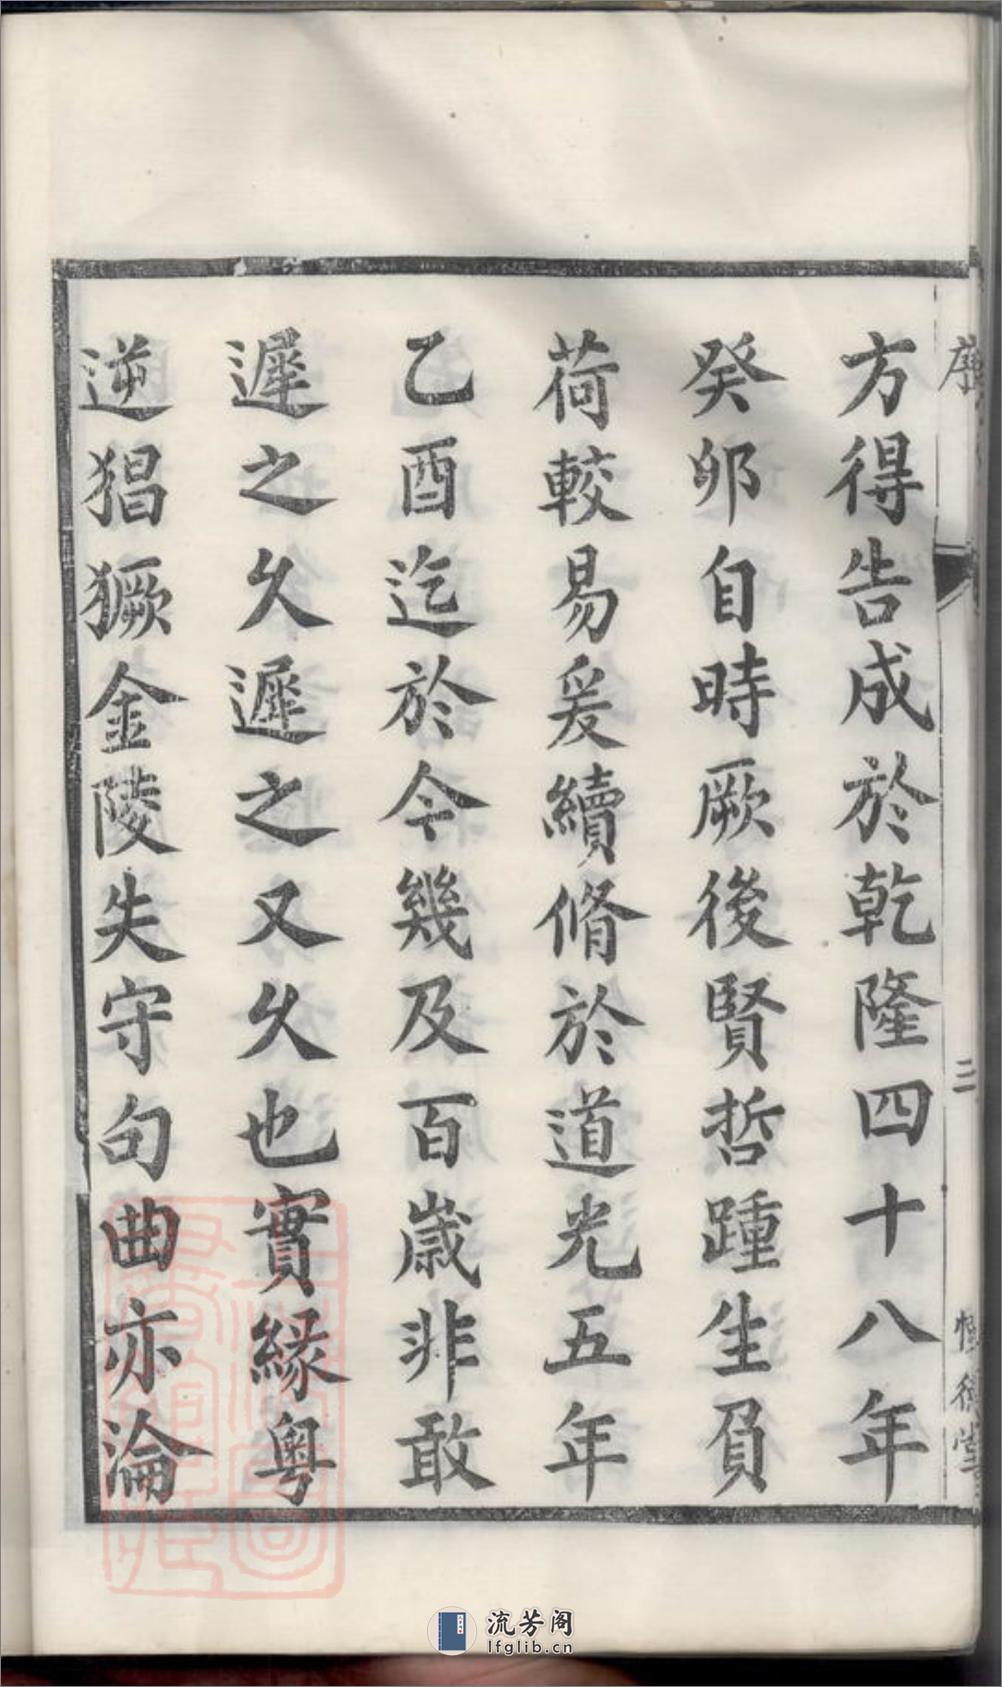 序
三
方得告成於乾隆四十八年
癸卯自時厥後賢哲踵生負
荷較易爰續脩於道光五年
乙酉迄於今幾及百歲非敢
遲之久遲之又久也實緣粵
逆猖獗金陵失守句曲亦淪
流芳阁
lfglib.cn